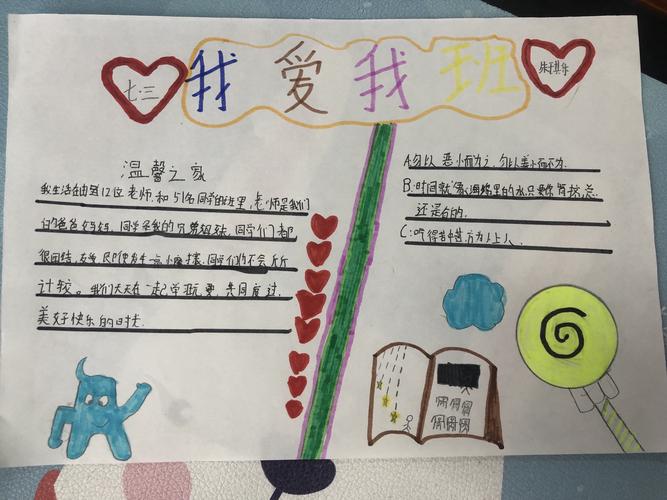 七.三
我爱我班
温馨之家
我生活在由12位老师,和51名同学的班里,老师是我们
的爸爸妈妈,同学是我的兄弟姐妹,同学们都
很团结,友爱,即使发生一点小摩擦,同学们也不会斤斤
计较。我们天天在一起学习玩耍,共同度过
美好快乐的时光.
A:勿以恶小而为之,勿以善小而不为.
B:时间就象海绵里的水只要你肯挤,总
还是有的.
C:吃得苦中苦,方为人上人.